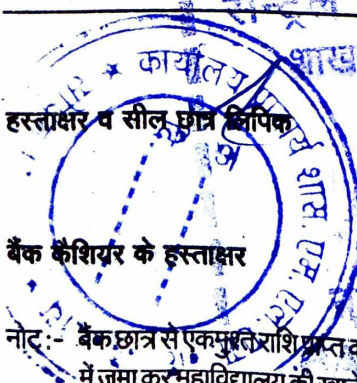 शाख
कार्यालय प्राचार्य शास. एम. एल.
हस्ताक्षर व सील छात्र लिपिक
बैंक कैशियर के हस्ताक्षर
नोट :- बैंक छात्र से एकमुश्त राशि प्राप्त
में जमा कर महाविद्यालय की